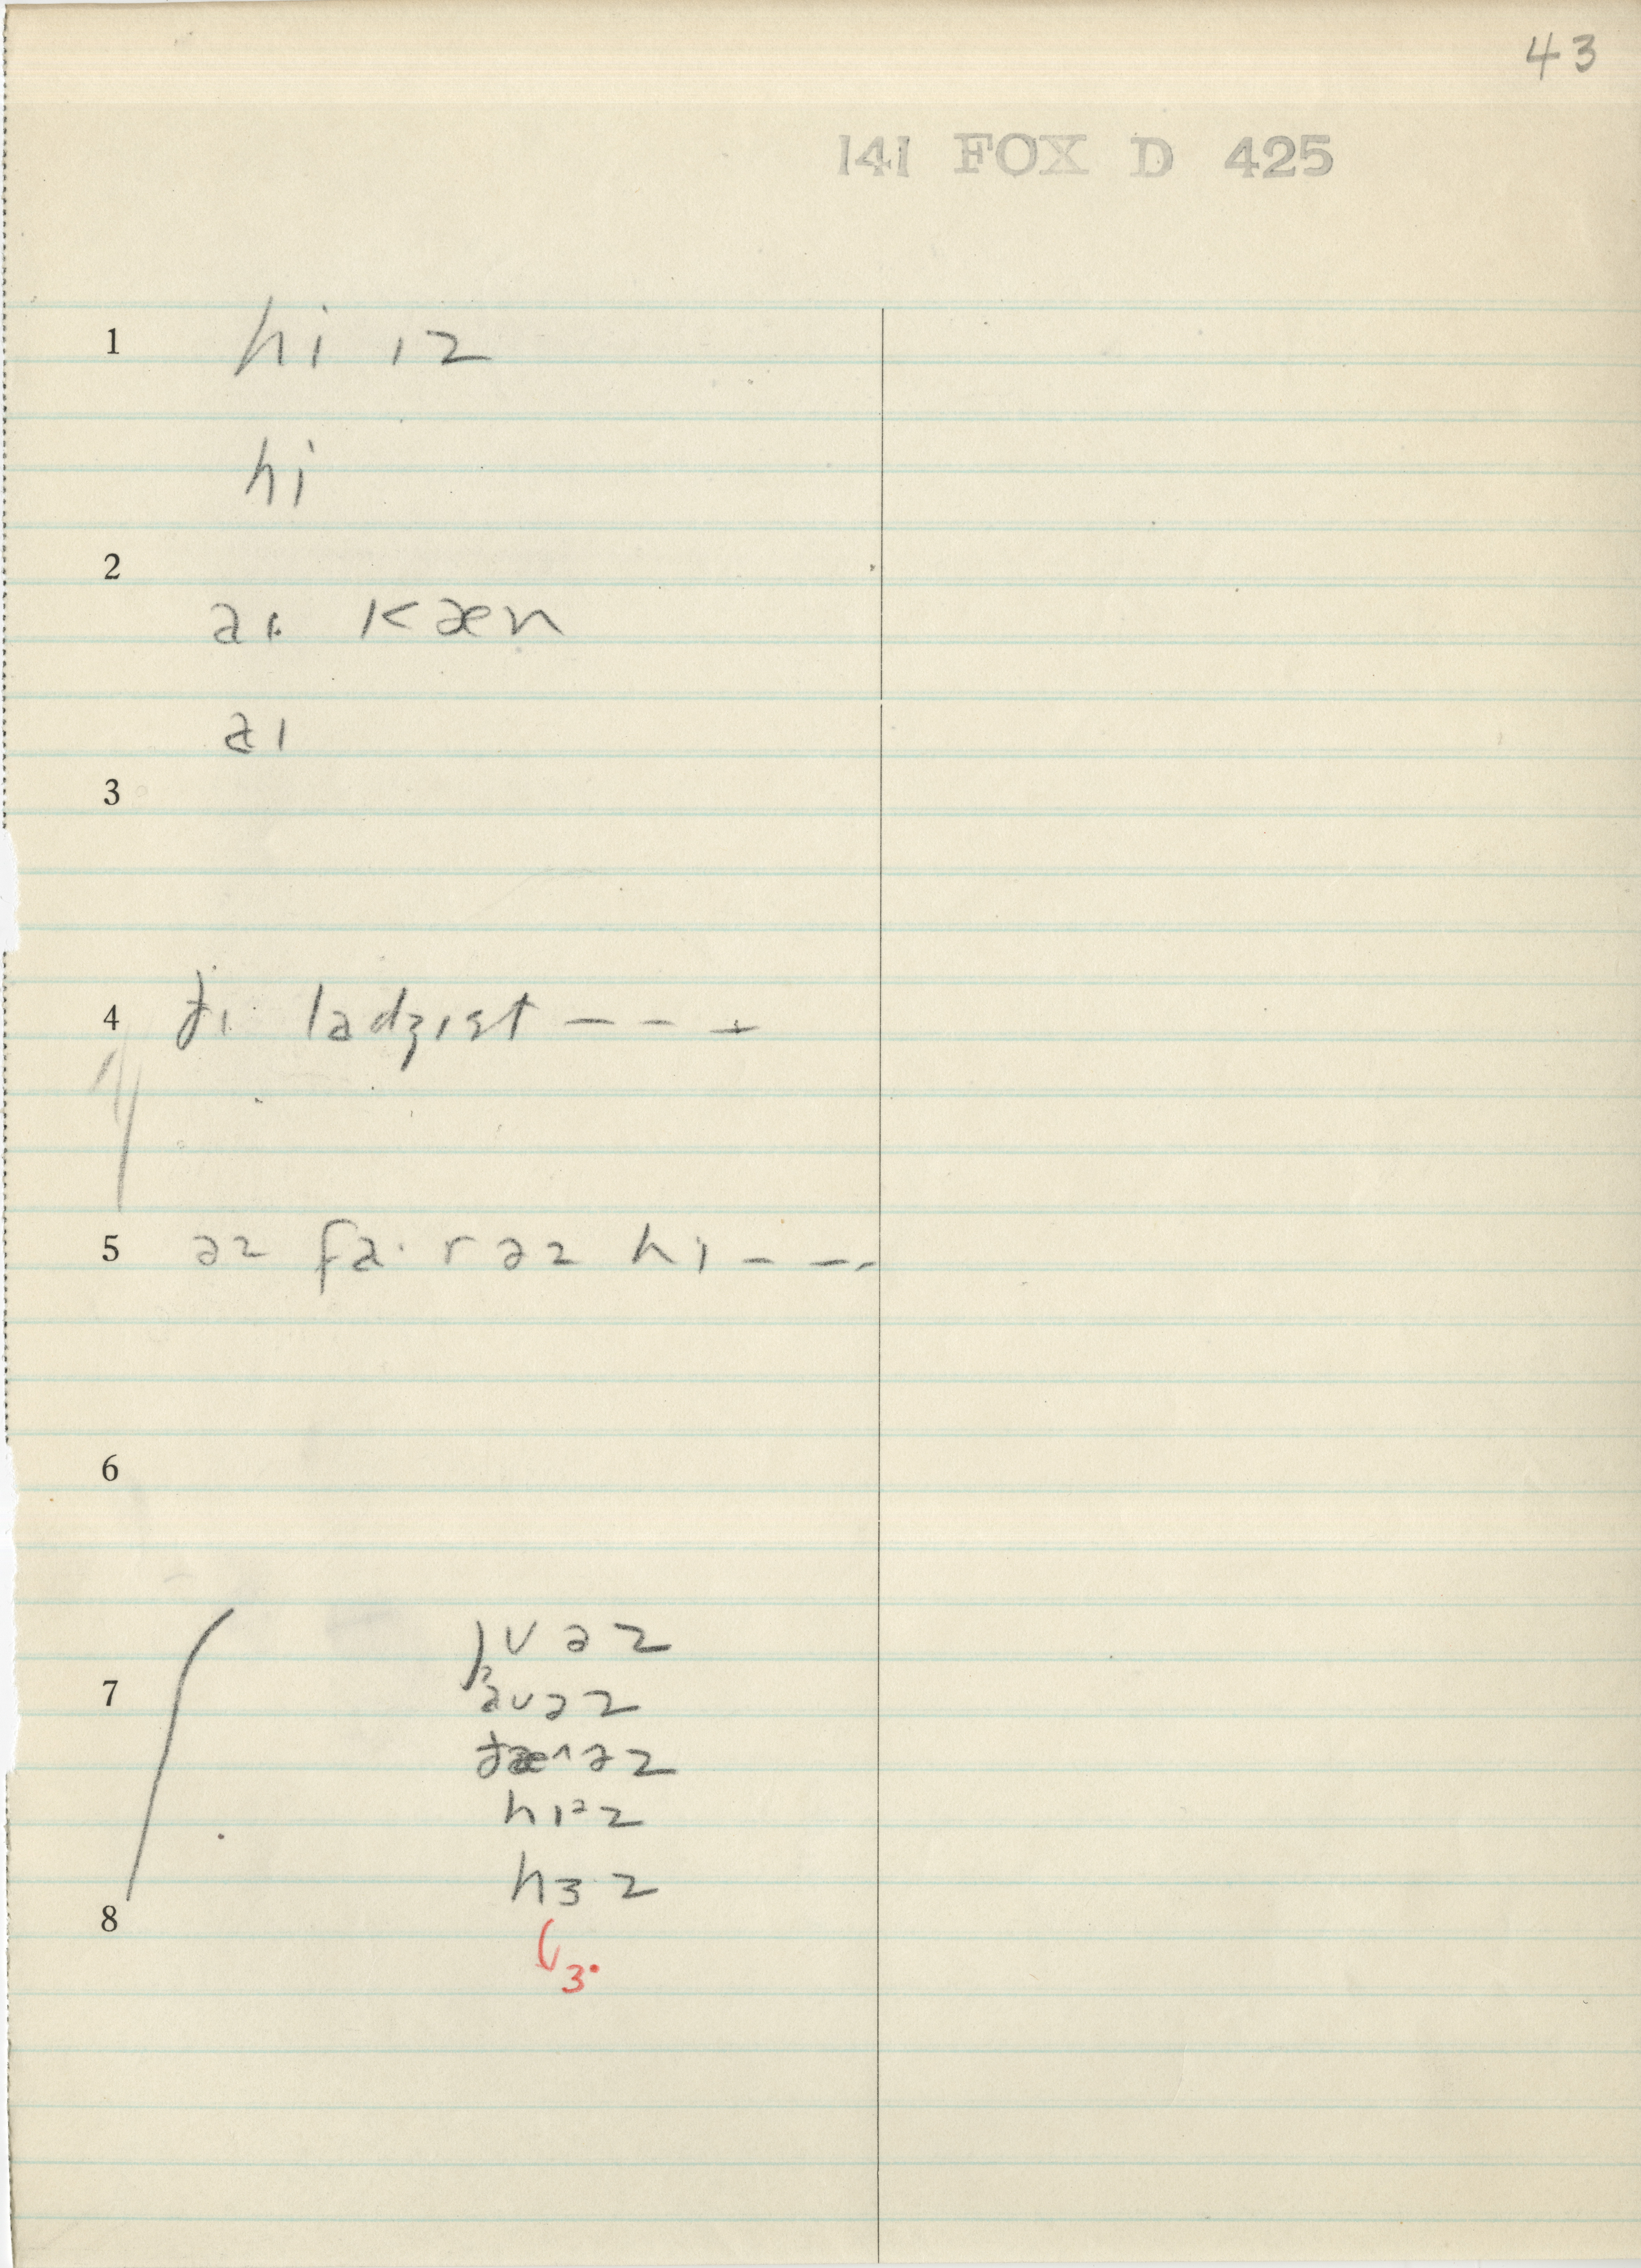 43
141 FOX D 425
1 hi ɪz
hi
2
aɪ kæn
aɪ
3
4 ðɪ ladʒɪst - - -
5 əz fa· r əz hɪ - - -
6
juəz
7 auəz
ðæ^əz
hɪᵊz
hɜz
8
ɜ·